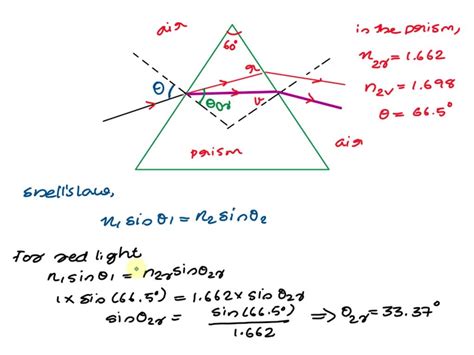 air
60°
in the prism,
n2r = 1.662
n2v = 1.698
θ = 66.5°
r
θ
θ2r
v
prism
air
snell's law,
n1 sin θ1 = n2 sin θ2
For red light
n1 sin θ1 = n2r sin θ2r
1 x sin (66.5°) = 1.662 x sin θ2r
sin θ2r = sin (66.5°) / 1.662 ⇒ θ2r = 33.37°